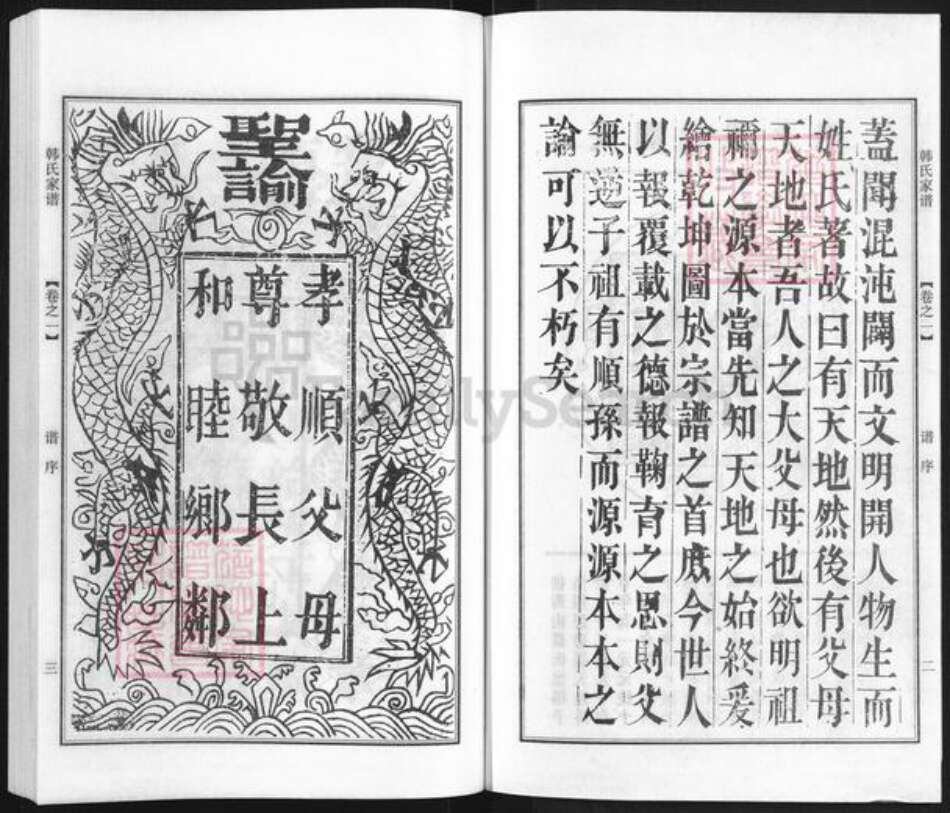 韩氏家谱
【卷之一】
谱序
二
蓋聞混沌闢而文明開人物生而
姓氏著故曰有天地然後有父母
天地者吾人之大父母也欲明祖
禰之源本當先知天地之始終爰
繪乾坤圖於宗譜之首庶今世人
以報覆載之德報鞠育之恩則父
無逆子祖有順孫而源源本本之
論可以不朽矣
聖諭
孝順父母
尊敬長上
和睦鄉鄰
韩氏家谱
【卷之一】
谱序
三
FamilySearch